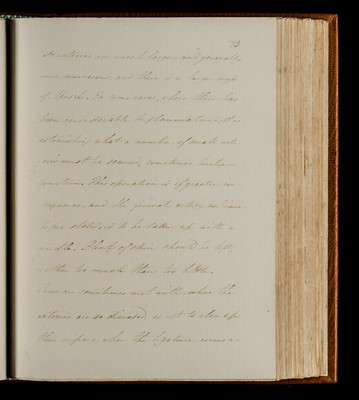 the arteries are much larger, and generally
more numerous, and there is a large
of muscle. In some cases, where there has
been considerable inflammation, it is
astonishing what a number of small arte-
ries must be secured, sometimes
This operation is of greater con-
sequence, and the femoral artery, as I have
before stated, is to be taken up with a
needle. Plenty of skin should be left,
rather too much than too little.
Cases are sometimes met with, where the
arteries are so diseased, as not to close up
this orifice, when the ligature comes a-